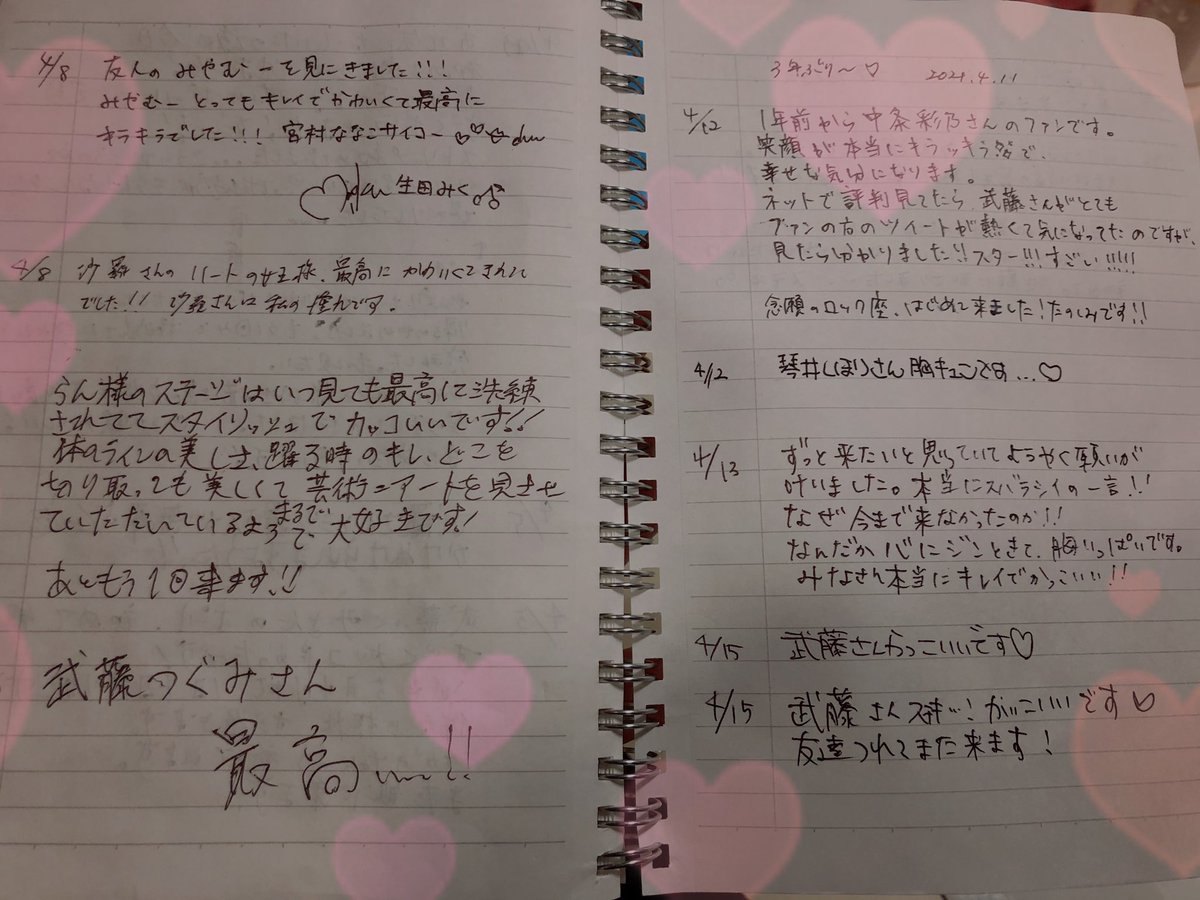 4/8 友人の みやむーを見にきました!!!
みやむー とってもキレイでかわいくて最高に
キラキラでした!!! 宮村ななこサイコー♡♡
生田みく♫
4/8 沙羅さんのハートの女王様、最高にかわいくてきれい
でした!! 沙羅さんは私の推んです。
らん様のステージはいつ見ても最高に洗練
されててスタイリッシュでカッコいいです!!
体のラインの美しさ、躍る時のキレ、どこを
切り取っても美しくて芸術=アートを見させ
ていただいているようで まるで 大好きです!
あともう1回来ます!!
武藤つぐみさん
最高ー!!
3年ぶり〜♡ 2021.4.11
4/12 1年前から中条彩乃さんのファンです。
笑顔が本当にキラッキラで、
幸せな気分になります。
ネットで評判見てたら 武藤さんがとても
ファンの方のツイートが熱くて気になってたのですが、
見たら分かりました!!スター!!!すごい!!!!!
念願のロック座、はじめて来ました!たのしみです!!
4/12 琴井しほりさん胸キュンです…♡
4/13 ずっと来たいと思っていてようやく願いが
叶いました。本当にスバラシイの一言!!
なぜ今まで来なかったのか!!
なんだか心にジンときて、胸いっぱいです。
みなさん本当にキレイでかっこいい!!
4/15 武藤さんかっこいいです♡
4/15 武藤さん かっこいいです♡
友達つれてまた来ます!